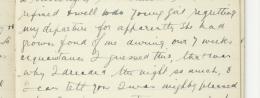 refined & well was young girl regretting
my departure for apparently she had
grown fond of me during our 7 weeks
acquaintance I guessed this, this was
why I dreaded the night so much, &
I can tell you I was mighty pleased